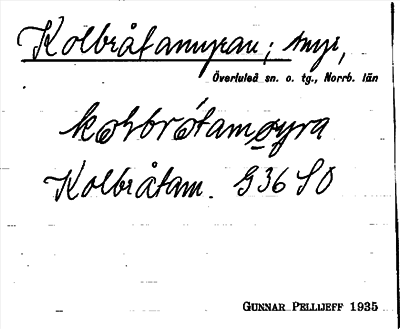 Kolbråtamyran; myr,
Överluleå sn. o. tg., Norrb. län
Kolbråtam. G36 SO
GUNNAR PELLIJEFF 1935